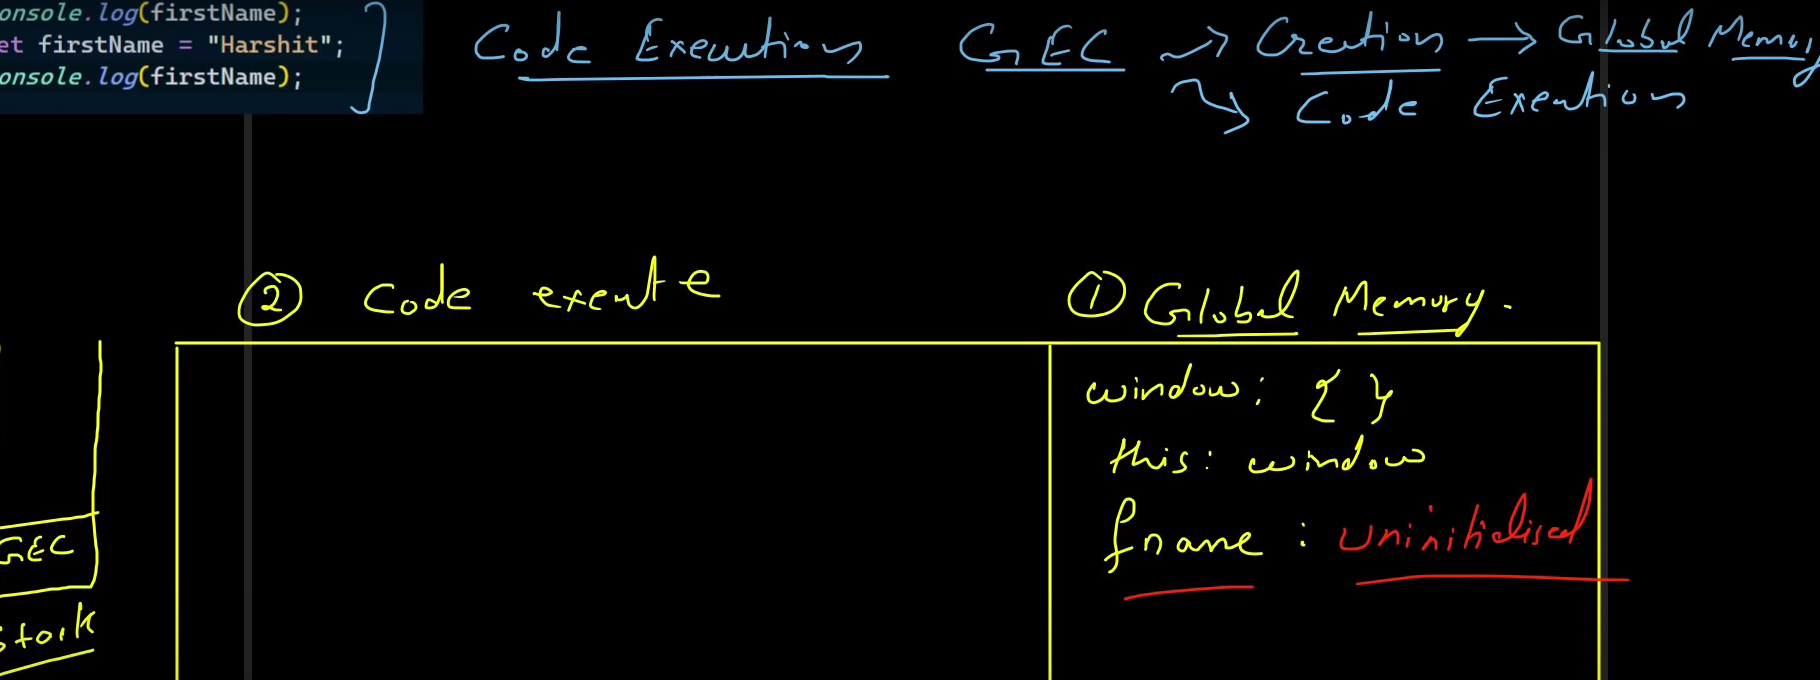 onsole.log(firstName);
et firstName = "Harshit";
onsole.log(firstName);
Code Execution GEC → Creation → Global Memory
Code Execution
② Code execute
① Global Memory.
window: { }
this: window
fname : uninitialised
GEC
Stack